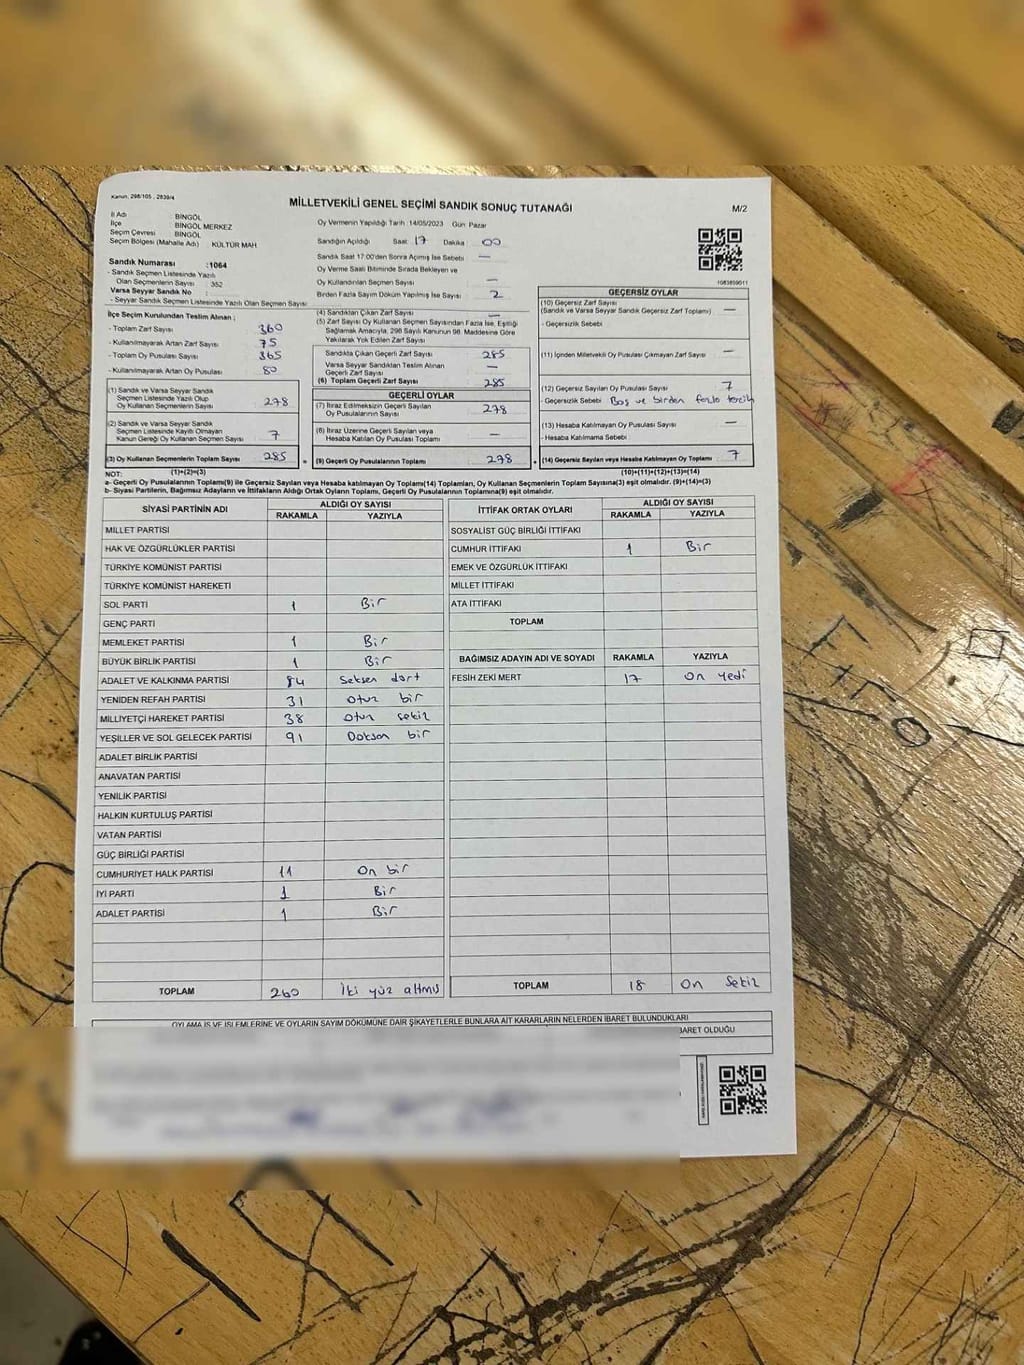 Kanun: 298/105 , 2839/4
MİLLETVEKİLİ GENEL SEÇİMİ SANDIK SONUÇ TUTANAĞI
M/2
İl Adı : BİNGÖL
İlçe : BİNGÖL MERKEZ
Seçim Çevresi : BİNGÖL
Seçim Bölgesi (Mahalle Adı) KÜLTÜR MAH
Sandık Numarası :1064
- Sandık Seçmen Listesinde Yazılı
Olan Seçmenlerin Sayısı : 352
Varsa Seyyar Sandık No :
- Seyyar Sandık Seçmen Listesinde Yazılı Olan Seçmen Sayısı:
Oy Vermenin Yapıldığı Tarih :14/05/2023 Gün: Pazar
Sandığın Açıldığı Saat: 17 Dakika 00
Sandık Saat 17:00'den Sonra Açılmış İse Sebebi —
Oy Verme Saati Bitiminde Sırada Bekleyen ve
Oy Kullandırılan Seçmen Sayısı —
Birden Fazla Sayım Döküm Yapılmış İse Sayısı 2
1063859011
İlçe Seçim Kurulundan Teslim Alınan ;
- Toplam Zarf Sayısı 360
- Kullanılmayarak Artan Zarf Sayısı 75
- Toplam Oy Pusulası Sayısı 365
- Kullanılmayarak Artan Oy Pusulası 80
(1) Sandık ve Varsa Seyyar Sandık
Seçmen Listesinde Yazılı Olup
Oy Kullanan Seçmenlerin Sayısı 278
(2) Sandık ve Varsa Seyyar Sandık
Seçmen Listesinde Kayıtlı Olmayan
Kanun Gereği Oy Kullanan Seçmen Sayısı 7
(3) Oy Kullanan Seçmenlerin Toplam Sayısı 285
(4) Sandıktan Çıkan Zarf Sayısı —
(5) Zarf Sayısı Oy Kullanan Seçmen Sayısından Fazla İse, Eşitliği
Sağlamak Amacıyla, 298 Sayılı Kanunun 98. Maddesine Göre
Yakılarak Yok Edilen Zarf Sayısı
Sandıkta Çıkan Geçerli Zarf Sayısı 285
Varsa Seyyar Sandıktan Teslim Alınan
Geçerli Zarf Sayısı —
(6) Toplam Geçerli Zarf Sayısı 285
GEÇERLİ OYLAR
(7) İtiraz Edilmeksizin Geçerli Sayılan
Oy Pusulalarının Sayısı 278
(8) İtiraz Üzerine Geçerli Sayılan veya
Hesaba Katılan Oy Pusulası Toplamı —
(9) Geçerli Oy Pusulalarının Toplamı 278
GEÇERSİZ OYLAR
(10) Geçersiz Zarf Sayısı
(Sandık ve Varsa Seyyar Sandık Geçersiz Zarf Toplamı) —
- Geçersizlik Sebebi
(11) İçinden Milletvekili Oy Pusulası Çıkmayan Zarf Sayısı —
(12) Geçersiz Sayılan Oy Pusulası Sayısı 7
- Geçersizlik Sebebi Boş ve birden fazla tercih
(13) Hesaba Katılmayan Oy Pusulası Sayısı —
- Hesaba Katılmama Sebebi
(14) Geçersiz Sayılan veya Hesaba Katılmayan Oy Toplamı 7
NOT: (1)+(2)=(3) (10)+(11)+(12)+(13)=(14)
a- Geçerli Oy Pusulalarının Toplamı(9) ile Geçersiz Sayılan veya Hesaba katılmayan Oy Toplamı(14) Toplamları, Oy Kullanan Seçmenlerin Toplam Sayısına(3) eşit olmalıdır. (9)+(14)=(3)
b- Siyasi Partilerin, Bağımsız Adayların ve İttifakların Aldığı Ortak Oyların Toplamı, Geçerli Oy Pusulalarının Toplamına(9) eşit olmalıdır.
SİYASİ PARTİNİN ADI ALDIĞI OY SAYISI
RAKAMLA YAZIYLA
MİLLET PARTİSİ
HAK VE ÖZGÜRLÜKLER PARTİSİ
TÜRKİYE KOMÜNİST PARTİSİ
TÜRKİYE KOMÜNİST HAREKETİ
SOL PARTİ 1 Bir
GENÇ PARTİ
MEMLEKET PARTİSİ 1 Bir
BÜYÜK BİRLİK PARTİSİ 1 Bir
ADALET VE KALKINMA PARTİSİ 84 Seksen dört
YENİDEN REFAH PARTİSİ 31 Otuz bir
MİLLİYETÇİ HAREKET PARTİSİ 38 Otuz sekiz
YEŞİLLER VE SOL GELECEK PARTİSİ 91 Doksan bir
ADALET BİRLİK PARTİSİ
ANAVATAN PARTİSİ
YENİLİK PARTİSİ
HALKIN KURTULUŞ PARTİSİ
VATAN PARTİSİ
GÜÇ BİRLİĞİ PARTİSİ
CUMHURİYET HALK PARTİSİ 11 On bir
İYİ PARTİ 1 Bir
ADALET PARTİSİ 1 Bir
TOPLAM 260 İki yüz altmış
İTTİFAK ORTAK OYLARI ALDIĞI OY SAYISI
RAKAMLA YAZIYLA
SOSYALİST GÜÇ BİRLİĞİ İTTİFAKI
CUMHUR İTTİFAKI 1 Bir
EMEK VE ÖZGÜRLÜK İTTİFAKI
MİLLET İTTİFAKI
ATA İTTİFAKI
TOPLAM
BAĞIMSIZ ADAYIN ADI VE SOYADI RAKAMLA YAZIYLA
FESİH ZEKİ MERT 17 On yedi
TOPLAM 18 On Sekiz
OYLAMA İŞ VE İŞLEMLERİNE VE OYLARIN SAYIM DÖKÜMÜNE DAİR ŞİKAYETLERLE BUNLARA AİT KARARLARIN NELERDEN İBARET BULUNDUKLARI
BARET OLDUĞU